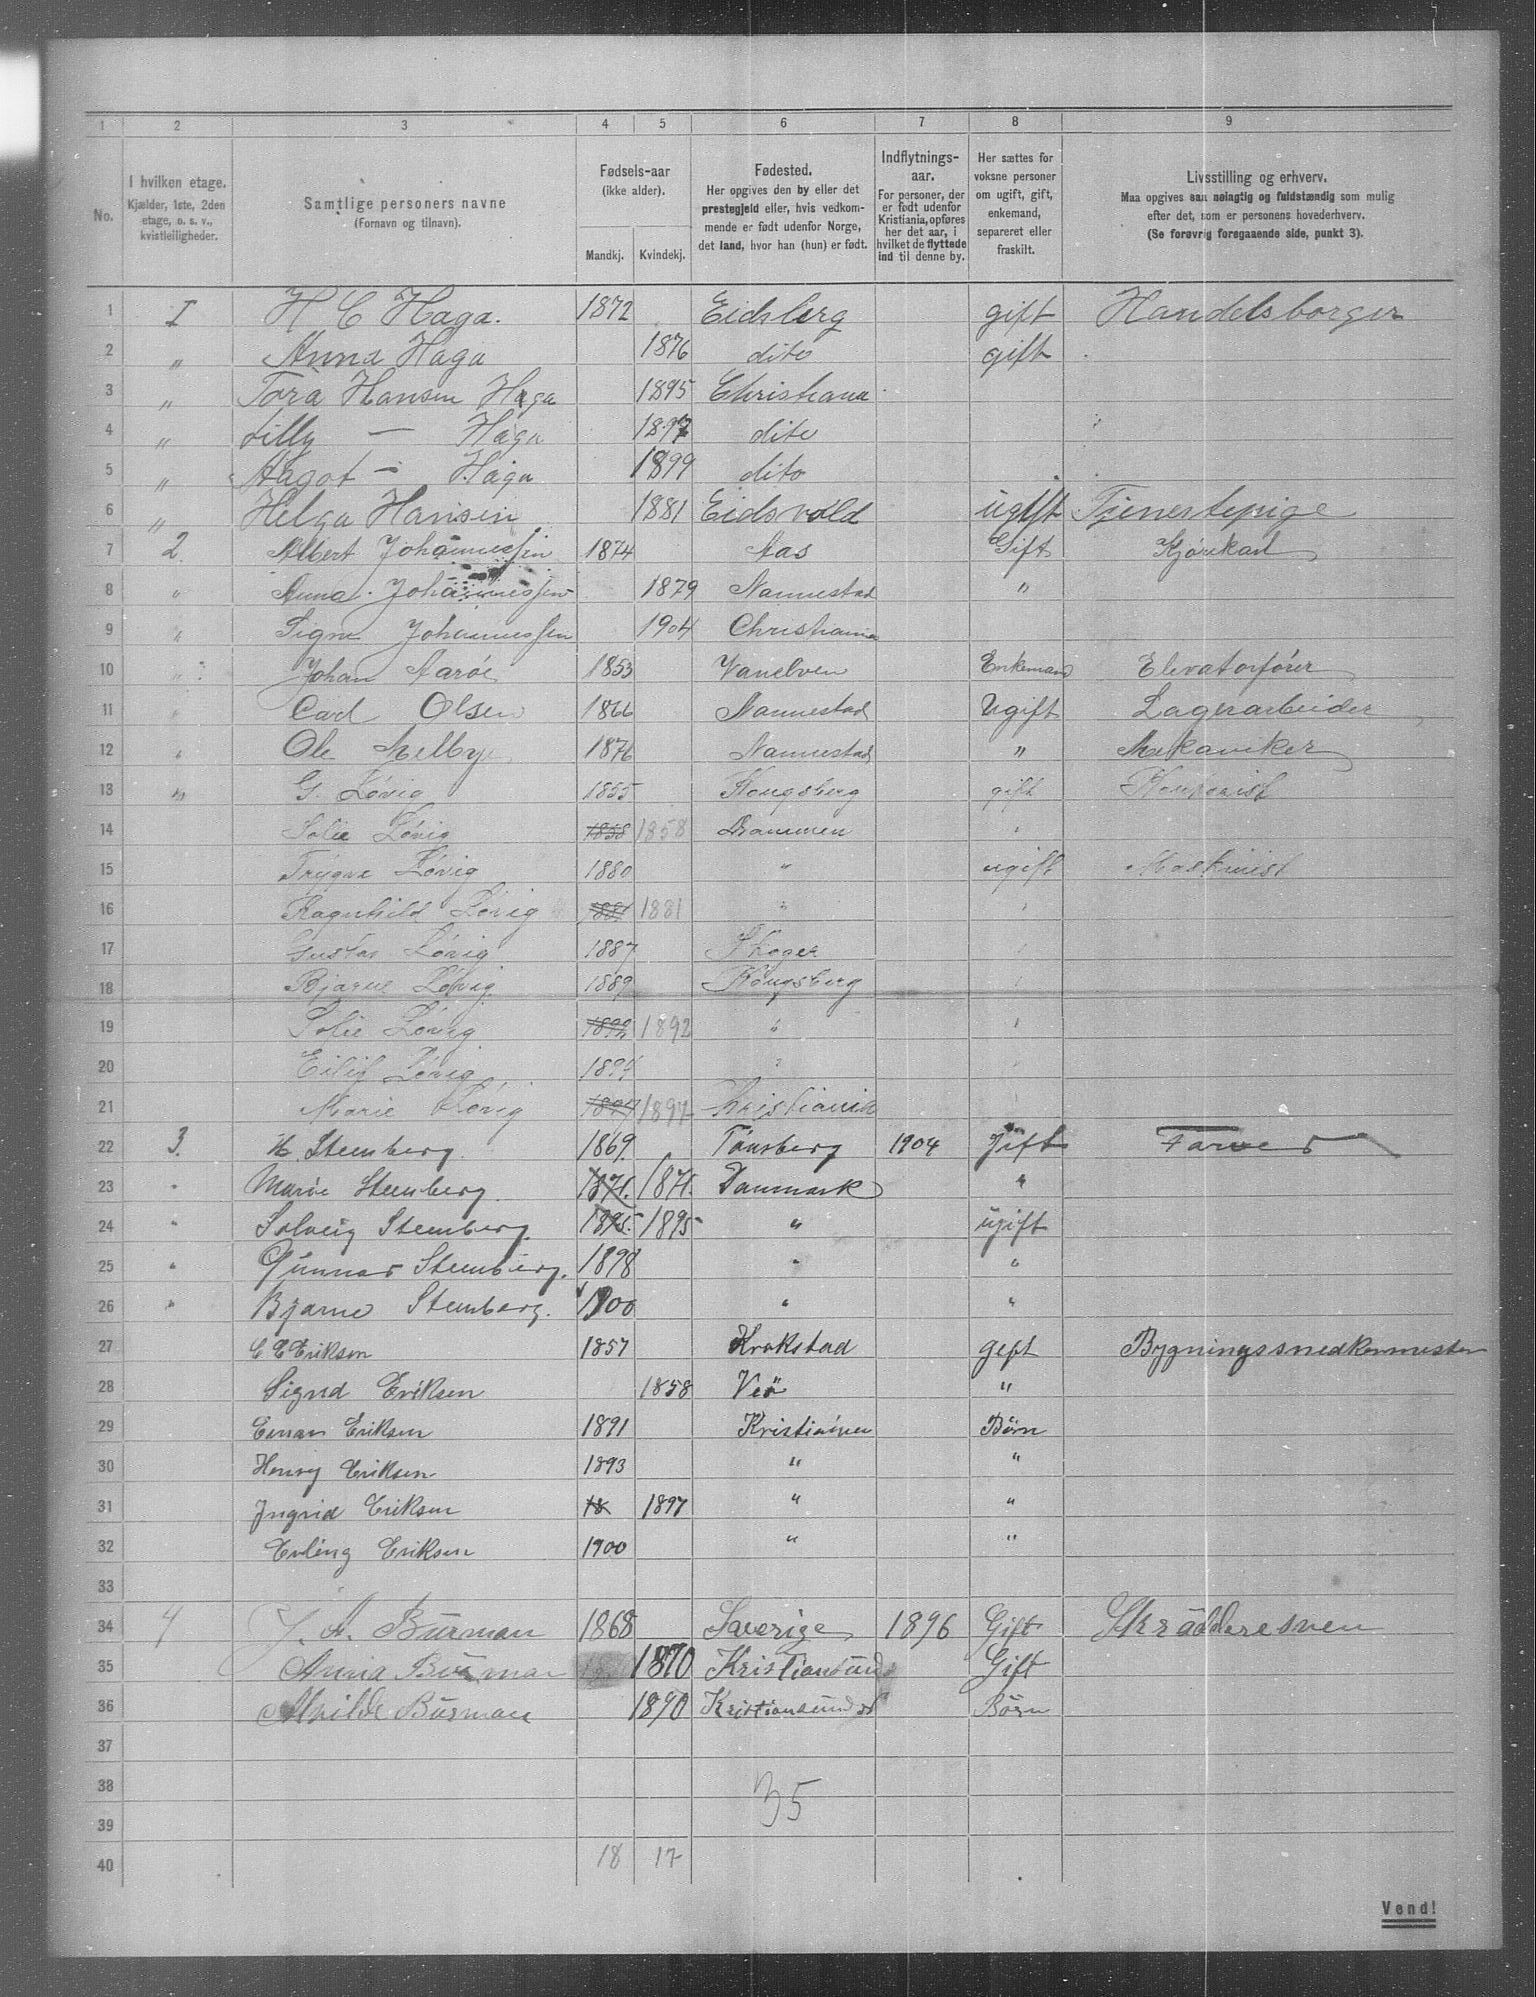 1 2 3 4 5 6 7 8 9
No.
I hvilken etage.
Kjælder, 1ste, 2den
etage, o. s. v.,
kvistleiligheder.
Samtlige personers navne
(Fornavn og tilnavn).
Fødsels-aar
(ikke alder).
Mandkj. Kvindekj.
Fødested.
Her opgives den by eller det
prestegjeld eller, hvis vedkom-
mende er født udenfor Norge,
det land, hvor han (hun) er født.
Indflytnings-
aar.
For personer, der
er født udenfor
Kristiania, opføres
her det aar, i
hvilket de flyttede
ind til denne by.
Her sættes for
voksne personer
om ugift, gift,
enkemand,
separeret eller
fraskilt.
Livsstilling og erhverv.
Maa opgives saa nøiagtig og fuldstændig som mulig
efter det, som er personens hovederhverv.
(Se forøvrig foregaaende side, punkt 3).
1 I H C Haga. 1872 Eidsberg gift Handelsborger
2 " Anna Haga 1876 dito gift
3 " Tora Hansen Haga 1895 Christiana
4 " Lilly — Haga 1897 dito
5 " Aagot — Haga 1899 dito
6 " Helga Hansen 1881 Eidsvold ugift Tjenestepige
7 2 Albert Johannessen 1874 Aas Gift Kjørekarl
8 " Anna Johannessen 1879 Nannestad "
9 " Signe Johannessen 1904 Christiania
10 " Johan Aarøe 1853 Vanelven Enkemand Elevatorfører
11 " Carl Olsen 1866 Nannestad Ugift Lagerarbeider
12 " Ole Melby 1876 Nannestad " Mekaniker
13 " G. Løvig 1855 Kongsberg gift Kontorist
14 Sofie Løvig 1858 1858 Drammen "
15 Trygve Løvig 1880 " ugift Maskinist
16 Ragnhild Løvig 1881 1881 " "
17 Gustav Løvig 1887 Skoger "
18 Bjarne Løvig 1889 Kongsberg "
19 Sofie Løvig 1892 1892 " "
20 Eilif Løvig 1894 " "
21 Marie Løvig 1897 1897 Kristiania "
22 3. H. Stemberg. 1869 Tønsberg 1904 gift Farver
23 " Marie Stemberg. 1871. 1871. Danmark "
24 " Solveig Stemberg. 1895. 1895 " ugift
25 " Gunnar Stemberg. 1898 " "
26 " Bjarne Stemberg. 1900 " "
27 C E Eriksen 1857 Krokstad gift Bygningssnedkermester
28 Sigrid Eriksen 1858 Veø "
29 Einar Eriksen 1891 Kristiania Børn
30 Henry Eriksen 1893 " "
31 Jngrid Eriksen 18 1897 " "
32 Erling Eriksen 1900 " "
33
34 4 J. A. Burman 1868 Sverige 1896 Gift Skräddersven
35 Anna Burman 1870 Kristiansund Gift
36 Alvilde Burman 1890 Kristiansund Börn
37
38 35
39
40 18 17
Vend!